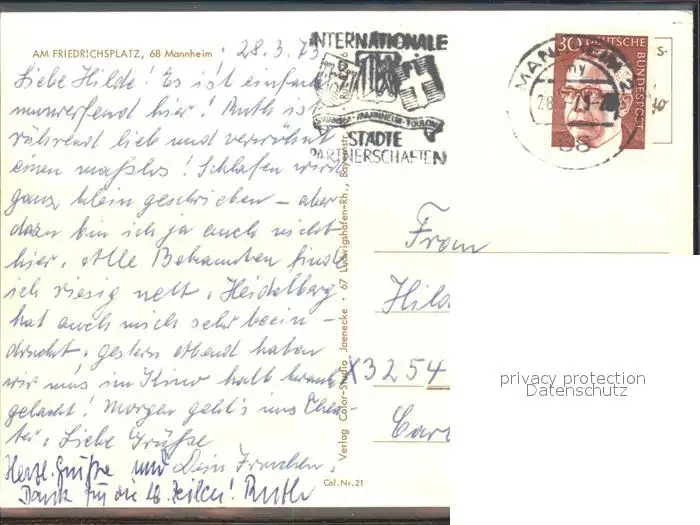 AM FRIEDRICHSPLATZ, 68 Mannheim
28.3.73
Liebe Hilde! Es ist einfach
umwerfend hier! Ruth ist
rührend lieb und verwöhnt
einen maßlos! Schlafen wird
ganz klein geschrieben – aber
dazu bin ich ja auch nicht
hier. Alle Bekannten finde
ich riesig nett. Heidelberg
hat auch mich sehr beein-
druckt. Gestern abend haben
wir uns im Kino halb krank
gelacht! Morgen geht's ins Thea-
ter. Liebe Grüße
Dein Franchen.
Herzl. Grüße und
Dank für die lb. Zeilen! Ruth
Verlag Color-Studio Jaenecke · 67 Ludwigshafen-Rh., Bayernstr.
Col. Nr. 21
INTERNATIONALE
SWANSEA - MANNHEIM - TOULON
STÄDTE
PARTNERSCHAFTEN
MANNHEIM
68
30 DEUTSCHE
BUNDESPOST
Frau
Hild
X3254
Car
privacy protection
Datenschutz